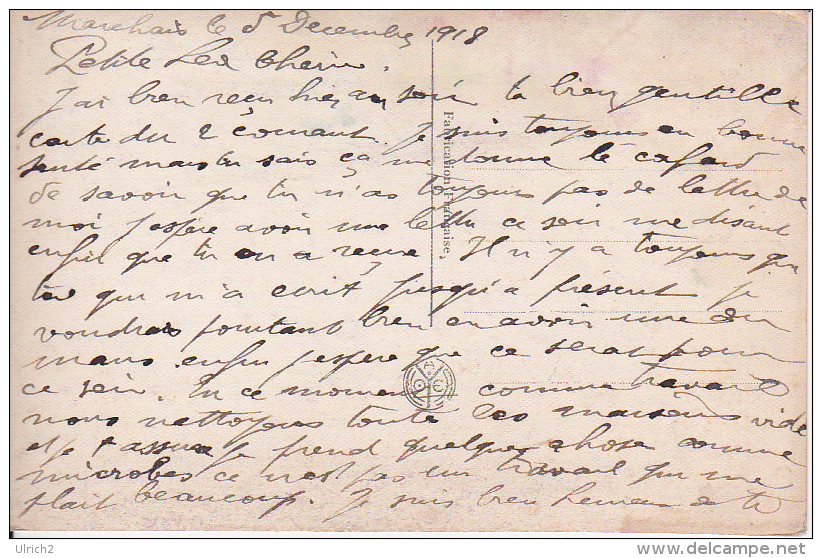 Marchais le 5 Decembre 1918
Petite Lea Cherie.
J'ai bien reçu hier au soir ta bien gentille
carte du 2 courant. Je suis toujours en bonne
santé mais tu sais ça me donne le cafard
de savoir que tu n'as toujours pas de lettre de
moi j'espere avoir une lettre ce soir me disant
enfin que tu en a reçue Il n'y a toujours que
toi qui m'a ecrit jusqu'a présent je
voudrais pourtant bien en avoir une du
mans enfin j'espere que ce serat pour
ce soir. En ce moment comme travail
nous nettoyons toute les maisons vide
et je t'assure je prend quelque chose comme
microbes ce n'est pas un travail qui me
plait beaucoup. Je suis bien heureux de te
Fabrication Française.
Ulrich2
www.delcampe.net